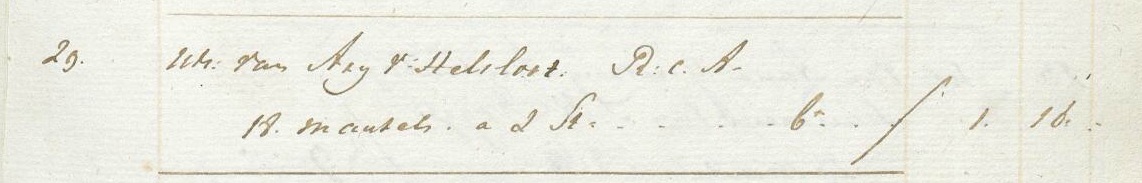 29. Wh: van Ary v: Helsloot. R: C. A-
18. mantels. a 2 St. - - - - - 6- - - f 1. 16. -